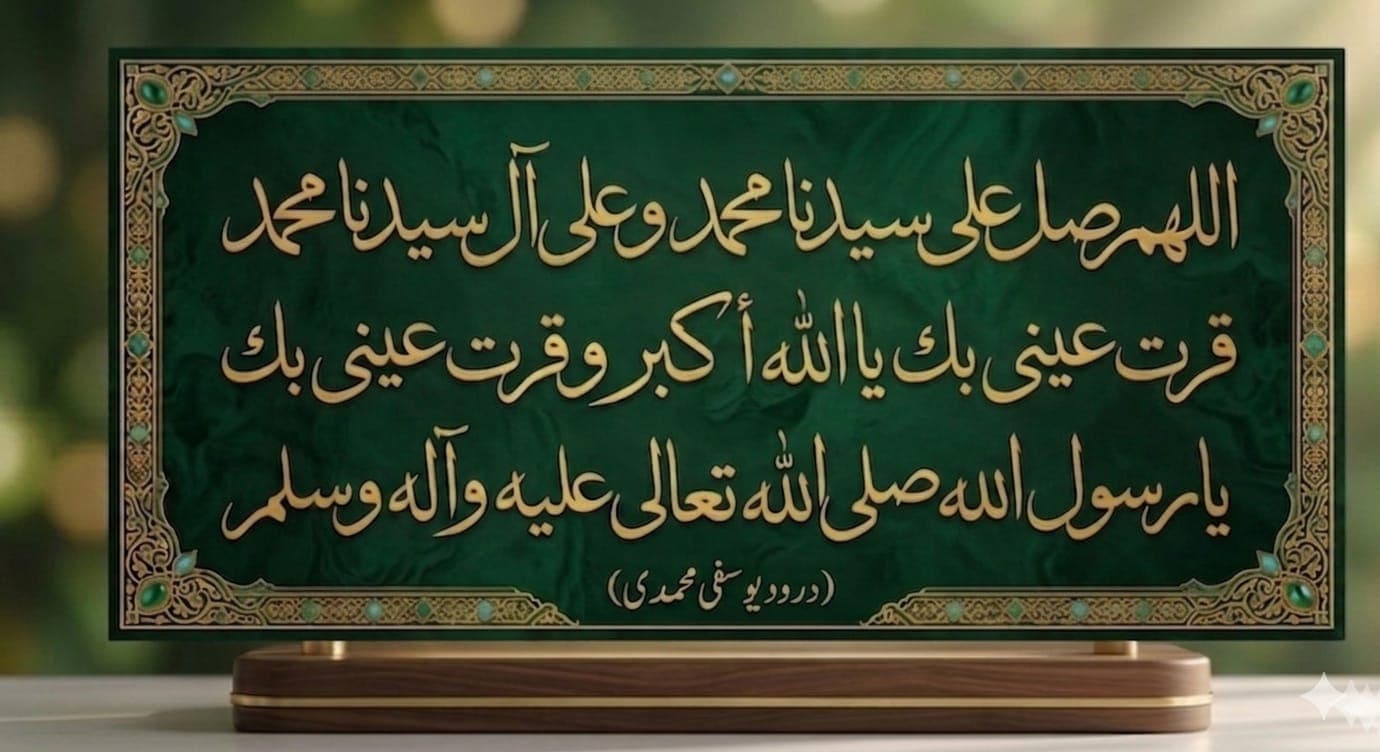 اللهم صل على سيدنا محمد وعلى آل سيدنا محمد
قرت عيني بك يا الله أكبر وقرت عيني بك
يا رسول الله صلى الله تعالى عليه وآله وسلم
(درود یوسفی محمدی)